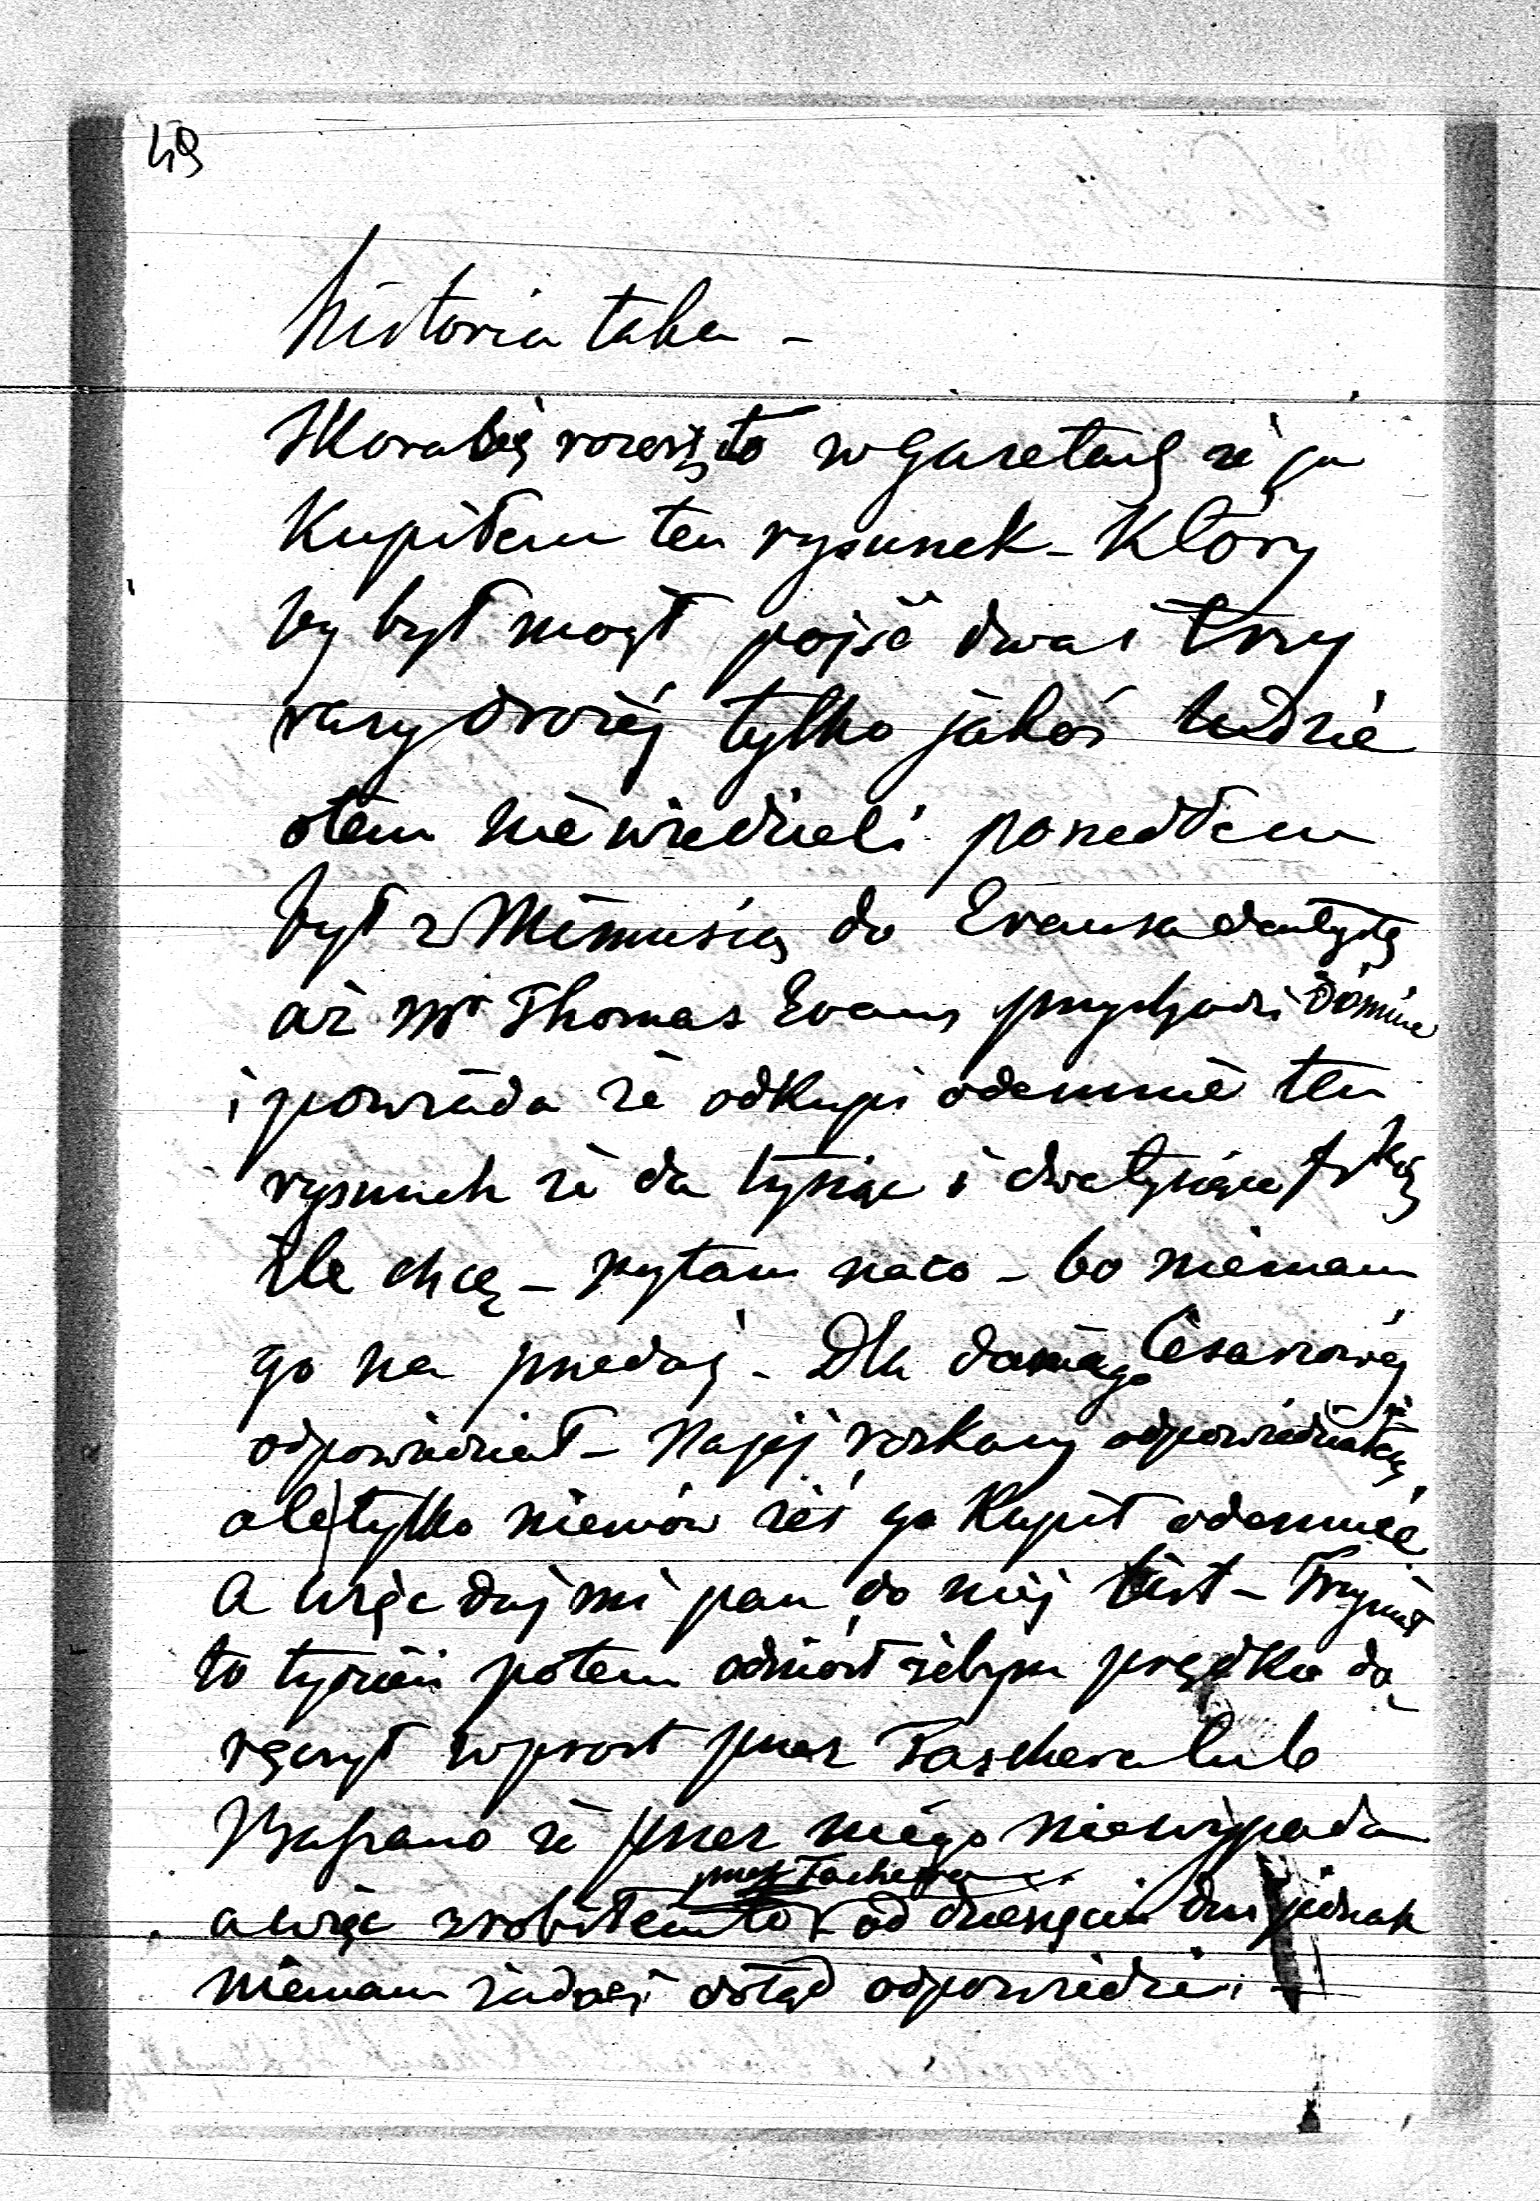 49
historia taka –
Skora się rozeszło w gazetach że ja
Kupiłem ten rysunek – Który
by był mógł pójść dwa i trzy
razy drożéj tylko jakoś ludzie
otem niewiedzieli poszedłem
był z Mimusią do Evansa dentysty
aż Mr Thomas Evans przychodzi domnie
i powiada że odkupi odemnie ten
rysunek że da tysiąc i dwa tysiące fr
Ile chcę – pytam naco – bo niemam
go na przedaj – Dla samego Cesarzowéj
odpowiedział – Najéj rozkazy odpowiedziałem
ale tylko niemów żeś go Kupił odemnie
a więc daj mi pan do niéj list – Trzymał
to tydzień potem odniósł żebym prędko do
ręczył wprost przez Taschera lub
Bassano że przez niego niewypada
przez Taschera
a więc zrobiłem to od dziesięciu dni jednak
niemam żadnéj dotąd odpowiedzi –